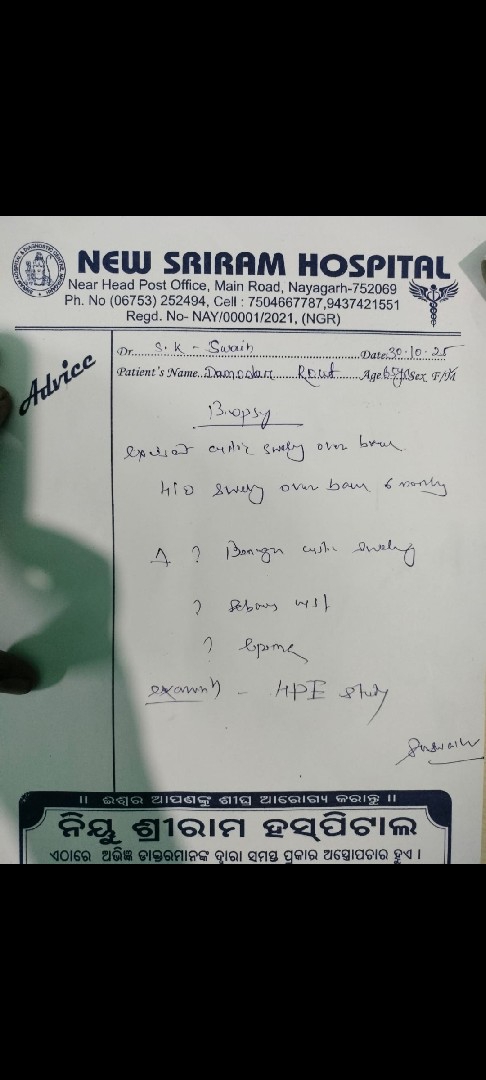 NEW SRIRAM HOSPITAL
Near Head Post Office, Main Road, Nayagarh-752069
Ph. No (06753) 252494, Cell : 7504667787,9437421551
Regd. No- NAY/00001/2021, (NGR)
Advice
Dr. S.K - Swain Date 30.10.25
Patient's Name Damodar Rout Age Sex F/M
Biopsy
cystic swelly over
H/O swelly over 6
Δ ? Benign cystic swelling
?
? lipoma
- HPE study
॥ ଈଶ୍ୱର ଆପଣଙ୍କୁ ଶୀଘ୍ର ଆରୋଗ୍ୟ କରାନ୍ତୁ ॥
ନିୟୁ ଶ୍ରୀରାମ ହସ୍ପିଟାଲ
ଏଠାରେ ଅଭିଜ୍ଞ ଡାକ୍ତରମାନଙ୍କ ଦ୍ୱାରା ସମସ୍ତ ପ୍ରକାର ଅସ୍ତ୍ରୋପଚାର ହୁଏ ।